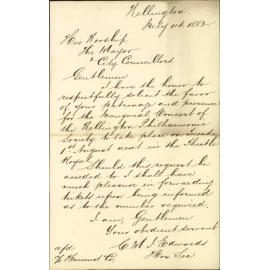 Wellington
July 1882
His Worship
The Mayor
& City Councillors
Gentlemen
I have the honor to
respectfully solicit the favor
of your patronage and presence
for the Inaugural Concert of
the Wellington Philharmonic
Society to take place on Tuesday
1st August next in the Theatre
Royal.
Should this request be
acceded to I shall have
much pleasure in forwarding
tickets upon being informed
as to the number required.
I am, Gentlemen
Your obedient servant
Edwards
Hon Sec